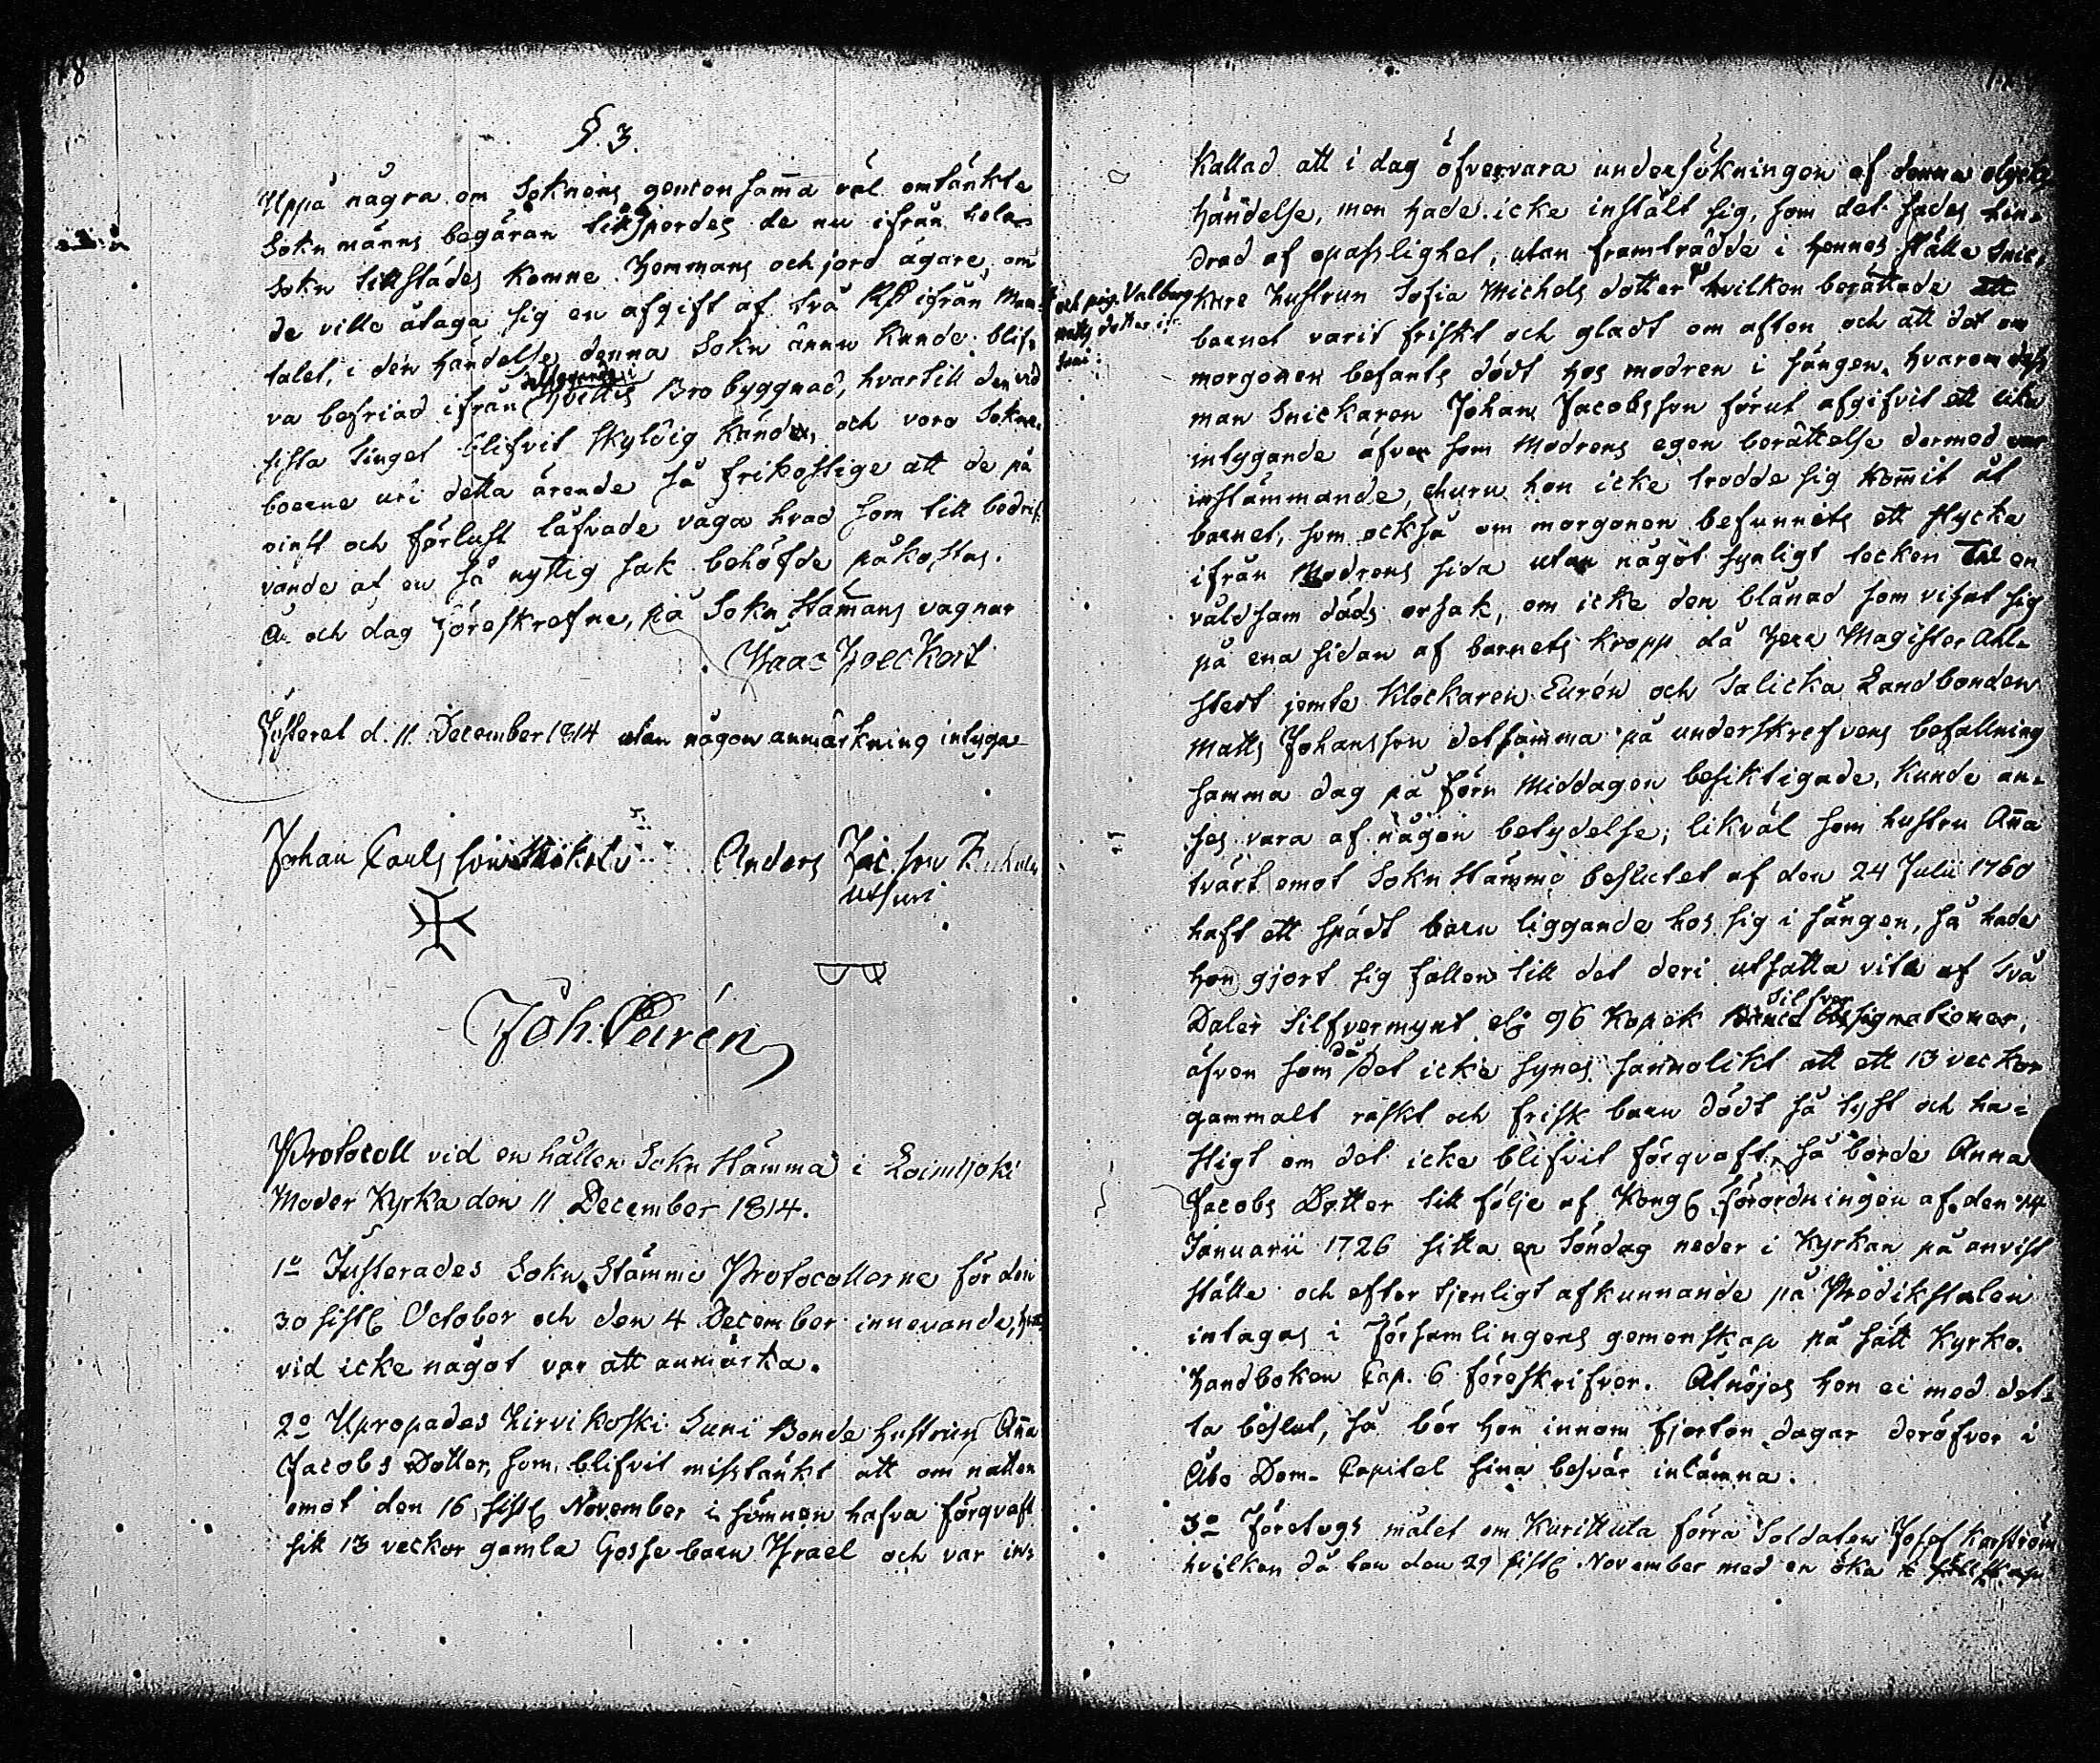 78
§. 3.
Uppå några om Soknens gemensamma väl omtänkte
Sokn männs begäran tillspordes de nu ifrån hela
Sokn tillstädes komne Hemmans och jord ägare, om
de ville åtaga sig en afgift af två Rß ifrån Man-
talet, i den händelse denna Sokn ännu kunde blif-
va befriad ifrån Brobyggnad, hvartill den vid
sista Tinget blifvit skyldig känd, och voro Sokne-
boerne uti detta ärende så frikostige att de på
vinst och förlust låfvade våga hvad som till bedrif-
vande af en så nyttig sak behöfde påkostas.
År och dag föreskrefne, på Sokn Stämans vagnar
Isaac Hoeckert
Justerat d. 11 December 1814 utan någon anmärkning intyga
Johan Pauls son Anders Jac. son
Joh. Eurén
Protocoll vid en hållen Sokn Stämma i Loimijoki
Moder Kyrka den 11 December 1814.
1º Justerades Sokn Stämme Protocollerne för den
30 sistl October och den 4 December innevande, hvar
vid icke något var att anmärka.
2º Upropades Hirvikoski Suni Bonde hustrun Aña
Jacobs Dotter, som blifvit misstänkt att om natten
emot den 16 sistl November i sömnen hafva förqvaft
sitt 13 veckor gamla Gosse barn Israel och var in-
kallad att i dag öfvervara undersökningen af denna olycks
händelse, men hade icke instält sig, som det sades hin-
drad af opasslighet, utan framträdde i hennes ställe Snic-
och pig. Valborg
Matts dotter
Suni
kare hustrun Sofia Michels dotter hvilken berättade att
barnet varit friskt och gladt om afton och att det om
morgonen befants dödt hos modren i sängen, hvarom dess
man Snickaren Johan Jacobsson förut afgifvit ett lika
intygande äfven som Modrens egen berättelse dermed var
instämmande, ehuru hon icke trodde sig kommit åt
barnet, som också om morgonen befunnits ett stycke
ifrån Modrens sida utan något synligt tecken Til en
våldsam döds orsak, om icke den blånad som visat sig
på ena sidan af barnets kropp då Herr Magister Ahl-
stedt jemte Klockaren Eurén och Salicka Landbonden
Matts Johansson detsamma på underskrefvens befallning
samma dag på förn Middagen besiktigade, kunde an-
ses vara af någon betydelse; likväl som hustru Aña
tvärt emot Sokn Stämmo beslutet af den 24 Julii 1760
haft ett spädt barn liggande hos sig i sängen, så hade
hon gjort sig fallen till det deri utsatta vite af två
Daler Silfvermynt elr 96 Kopek Silfver
äfven som då det icke synes sannolikt att ett 13 veckor
gammalt raskt och frisk barn dödt så tyst och ha-
stigt om det icke blifvit förqvaft, så borde Anna
Jacobs Dotter till följe af Kongl förordningen af den 14
Januarii 1726 sitta en Söndag neder i Kyrkan på anvist
ställe och efter tjenligt afkunnande på Predikstolen
intagas i Församlingens gemenskap på sätt Kyrko-
Handboken Cap. 6 föreskrifver. Åtnöjes hon ei med det-
ta beslut, så bör hon innom fjorton dagar deröfver i
Åbo Dom-Capitel sina besvär inlämna.
3º Företogs målet om Kurittula förra Soldaten Josef Karström
hvilken då han den 29 sistl November med en öka